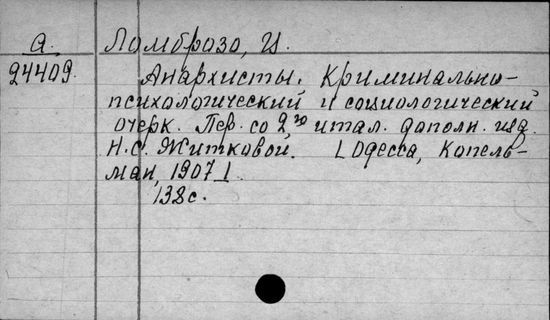 а.
Ломброзо, Ц.
24409.
Анархисты. Криминально-
психологический и социологический
очерк. Пер. со 2го итал. дополн. изд.
Н.С. Житковой. [Одесса, Копель-
ман, 1907].
138с.